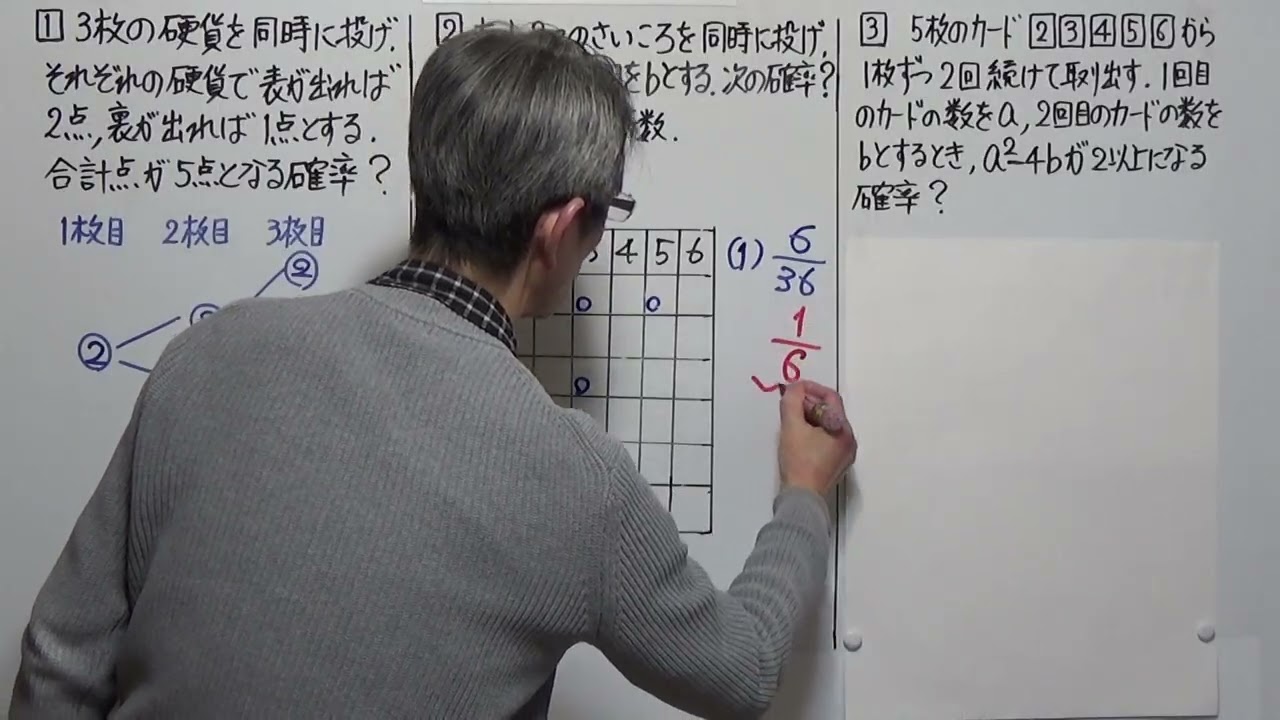 1 3枚の硬貨を同時に投げ,
それぞれの硬貨で表が出れば
2点,裏が出れば1点とする.
合計点が5点となる確率?
1枚目 2枚目 3枚目
2
2
2
のさいころを同時に投げ,
をbとする.次の確率?
数.
4 5 6
(1) 6/36
1/6
3 5枚のカード 2 3 4 5 6 から
1枚ずつ2回続けて取出す.1回目
のカードの数をa,2回目のカードの数を
bとするとき,a²-4bが2以上になる
確率?